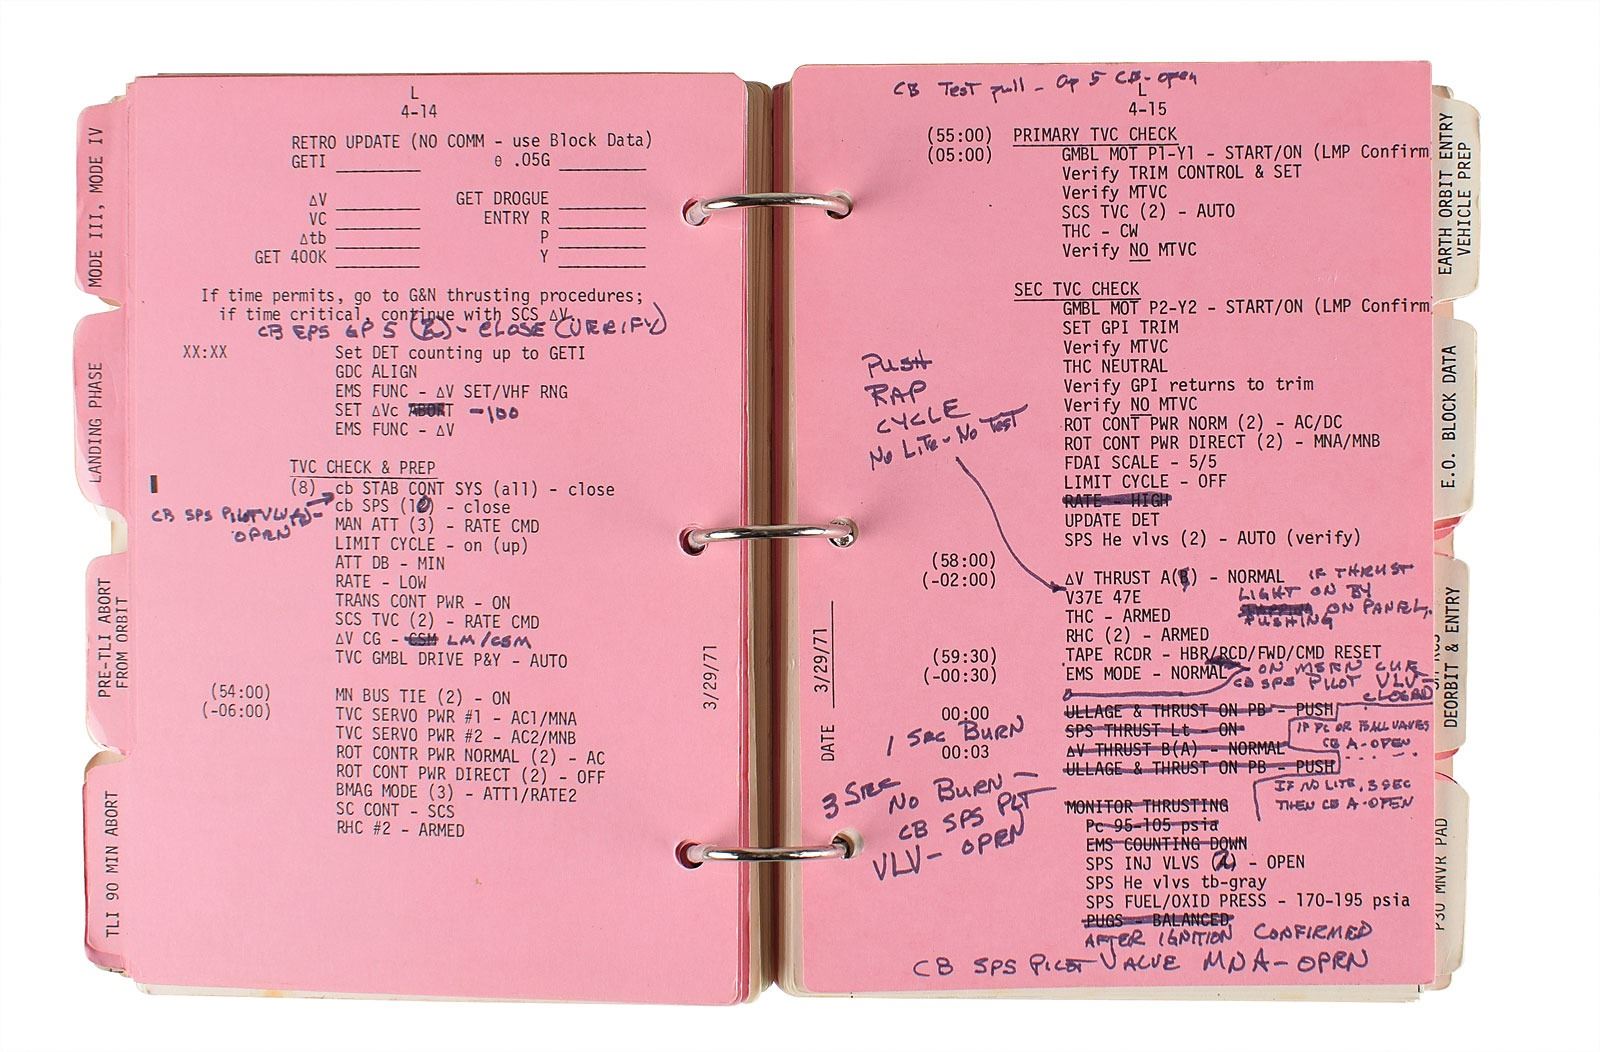 MODE III, MODE IV
LANDING PHASE
PRE-TLI ABORT
FROM ORBIT
TLI 90 MIN ABORT
L
4-14
RETRO UPDATE (NO COMM - use Block Data)
GETI ________ θ .05G ________
ΔV ________ GET DROGUE ________
VC ________ ENTRY R ________
Δtb ________ P ________
GET 400K ________ Y ________
If time permits, go to G&N thrusting procedures;
if time critical, continue with SCS ΔV.
CB EPS GP 5 (2) - CLOSE (VERIFY)
XX:XX Set DET counting up to GETI
GDC ALIGN
EMS FUNC - ΔV SET/VHF RNG
SET ΔVc ABORT -100
EMS FUNC - ΔV
TVC CHECK & PREP
(8) cb STAB CONT SYS (all) - close
cb SPS (10) - close
CB SPS PILOT VLV (2) -
OPEN
MAN ATT (3) - RATE CMD
LIMIT CYCLE - on (up)
ATT DB - MIN
RATE - LOW
TRANS CONT PWR - ON
SCS TVC (2) - RATE CMD
ΔV CG - CSM LM/CSM
TVC GMBL DRIVE P&Y - AUTO
(54:00) MN BUS TIE (2) - ON
(-06:00) TVC SERVO PWR #1 - AC1/MNA
TVC SERVO PWR #2 - AC2/MNB
ROT CONTR PWR NORMAL (2) - AC
ROT CONT PWR DIRECT (2) - OFF
BMAG MODE (3) - ATT1/RATE2
SC CONT - SCS
RHC #2 - ARMED
3/29/71
CB Test pull - Gp 5 CB - open
L
4-15
(55:00) PRIMARY TVC CHECK
(05:00) GMBL MOT P1-Y1 - START/ON (LMP Confirm
Verify TRIM CONTROL & SET
Verify MTVC
SCS TVC (2) - AUTO
THC - CW
Verify NO MTVC
SEC TVC CHECK
GMBL MOT P2-Y2 - START/ON (LMP Confirm
SET GPI TRIM
Verify MTVC
THC NEUTRAL
Verify GPI returns to trim
Verify NO MTVC
ROT CONT PWR NORM (2) - AC/DC
ROT CONT PWR DIRECT (2) - MNA/MNB
FDAI SCALE - 5/5
LIMIT CYCLE - OFF
RATE - HIGH
UPDATE DET
SPS He vlvs (2) - AUTO (verify)
PUSH
RAP
CYCLE
No LITE - No TEST
(58:00)
(-02:00) ΔV THRUST A(B) - NORMAL IF THRUST
LIGHT ON BY
ON PANEL,
PUSHING
V37E 47E
THC - ARMED
RHC (2) - ARMED
(59:30) TAPE RCDR - HBR/RCD/FWD/CMD RESET
(-00:30) EMS MODE - NORMAL ON MSFN CUE
CB SPS PILOT VLV
CLOSED
00:00 ULLAGE & THRUST ON PB - PUSH
SPS THRUST Lt - ON
IF PC OR BALL VALVES
CB A-OPEN
1 SEC BURN
00:03 ΔV THRUST B(A) - NORMAL
ULLAGE & THRUST ON PB - PUSH
IF NO LITE, 3 SEC
THEN CB A-OPEN
3 SEC
NO BURN -
CB SPS PLT
VLV - OPEN
MONITOR THRUSTING
Pc 95-105 psia
EMS COUNTING DOWN
SPS INJ VLVS (2) - OPEN
SPS He vlvs tb-gray
SPS FUEL/OXID PRESS - 170-195 psia
PUGS - BALANCED
AFTER IGNITION CONFIRMED
CB SPS PILOT VALVE MNA - OPEN
DATE 3/29/71
EARTH ORBIT ENTRY
VEHICLE PREP
E.O. BLOCK DATA
DEORBIT & ENTRY
P30 MNVR PAD